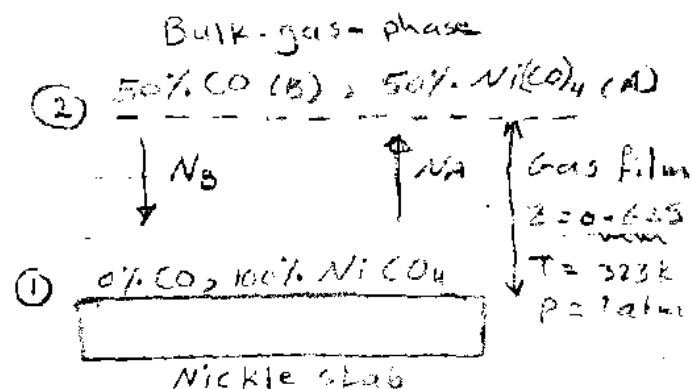 Bulk-gas-phase
② 50% CO (B), 50% Ni(CO)4 (A)
NB
NA
Gas film
Z = 0.625 mm
T = 323k
P = 1 atm
① 0% CO, 100% NiCO4
Nickle slab